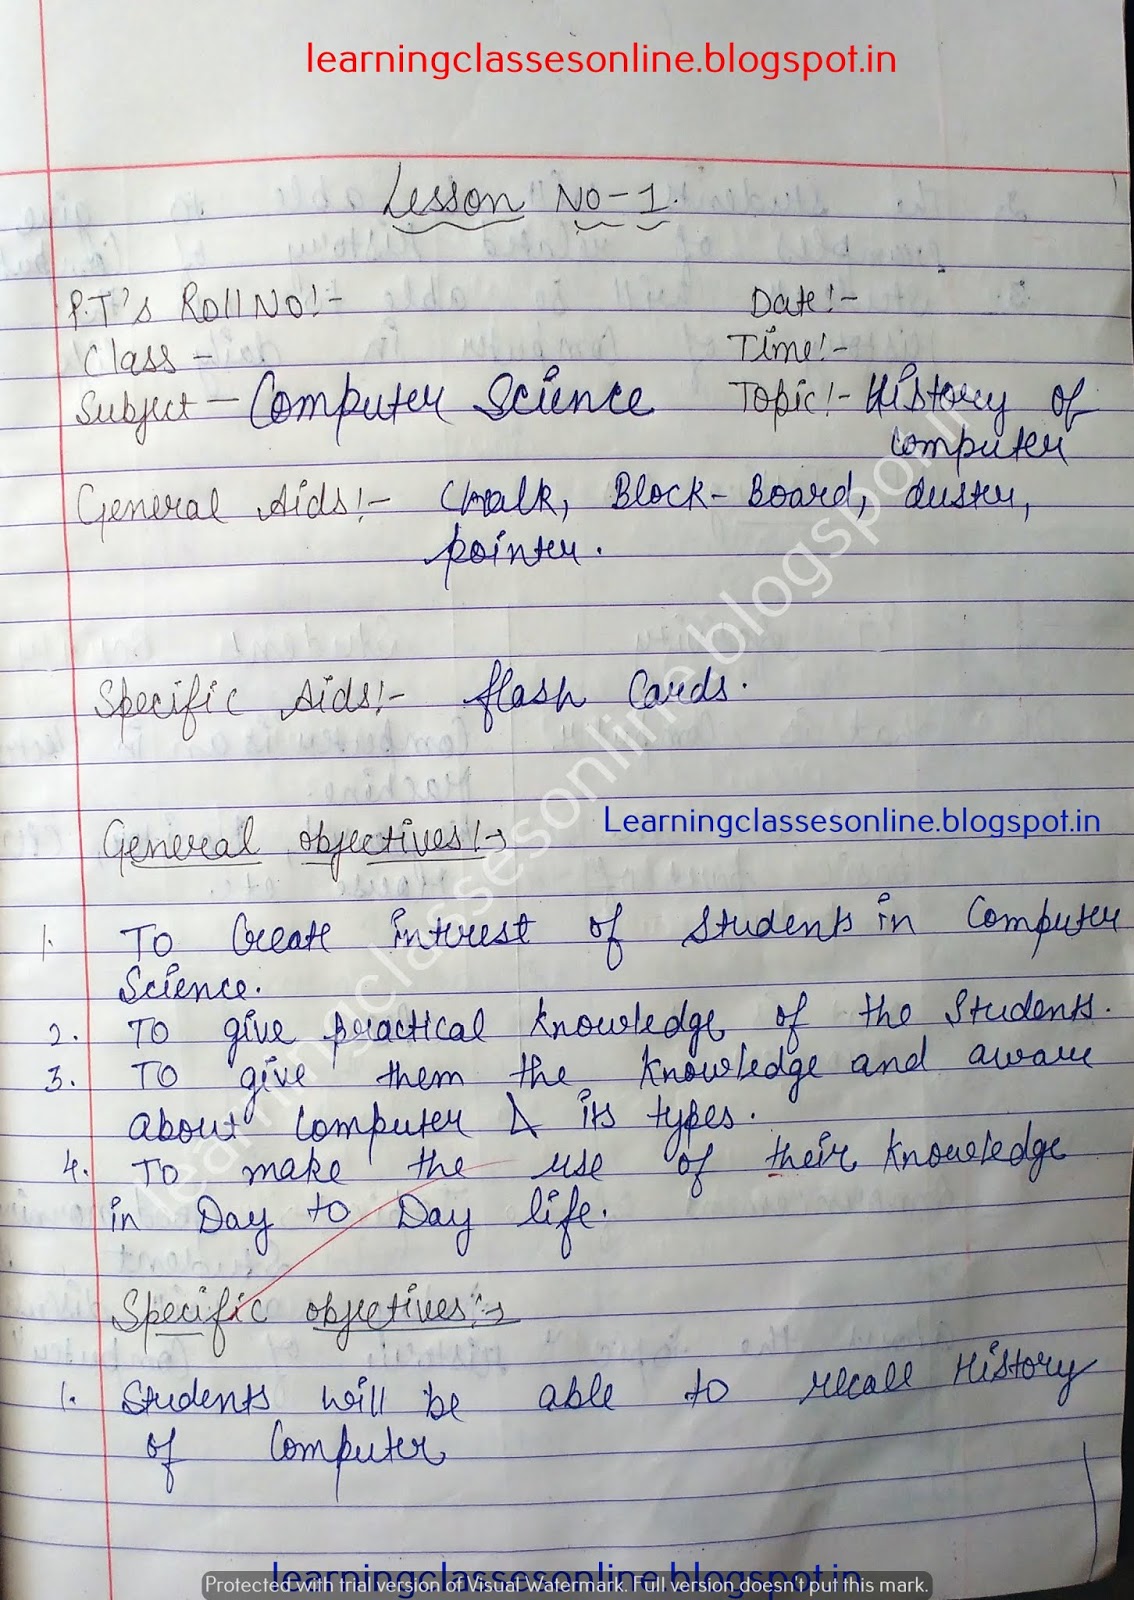 learningclassesonline.blogspot.in
Lesson No-1.
P.T's Roll No!-
Date!-
Class -
Time!-
Subject - Computer Science
Topic!- History of
computer
General Aids!- Chalk, Block-Board, duster,
pointer.
Specific Aids!- flash Cards.
Learningclassesonline.blogspot.in
General objectives!→
1. To Create interest of Students in Computer
Science.
2. To give practical knowledge of the Students.
3. To give them the knowledge and aware
about Computer & its types.
4. To make the use of their knowledge
in Day to Day life.
Specific objectives:→
1. Students will be able to recall History
of Computer
learningclassesonline.blogspot.in
Protected with trial version of Visual Watermark. Full version doesn't put this mark.
learningclassesonline.blogspot.in